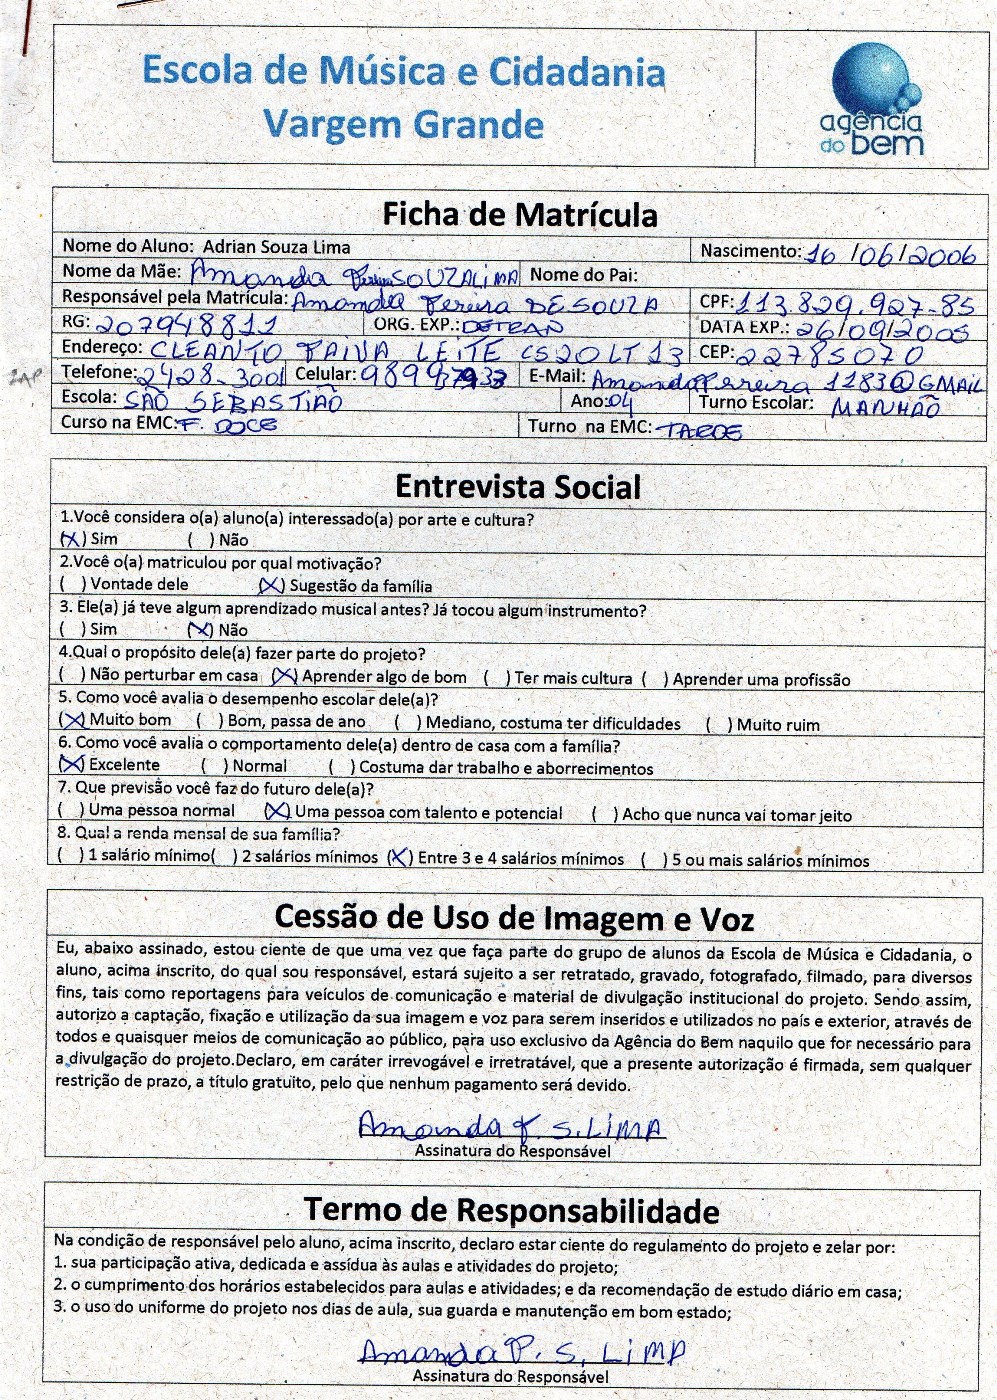 Escola de Música e Cidadania
Vargem Grande
agência
do bem
Ficha de Matrícula
Nome do Aluno: Adrian Souza Lima Nascimento: 16 /06/2006
Nome da Mãe: Amanda SOUZA LIMA Nome do Pai:
Responsável pela Matrícula: Amanda Pereira DE SOUZA CPF: 113.829.927-85
RG: 207948811 ORG. EXP.: DETRAN DATA EXP.: 26/09/2005
Endereço: CLEANTO PAIVA LEITE CS20 LT 13 CEP: 22785070
ZAP Telefone: 2428-3001 Celular: E-Mail: AmandaPereira 1183@GMAIL
Escola: SÃO SEBASTIÃO Ano: 04 Turno Escolar: MANHÃO
Curso na EMC: F. DOCE Turno na EMC: TARDE
Entrevista Social
1.Você considera o(a) aluno(a) interessado(a) por arte e cultura?
(X) Sim ( ) Não
2.Você o(a) matriculou por qual motivação?
( ) Vontade dele (X) Sugestão da família
3. Ele(a) já teve algum aprendizado musical antes? Já tocou algum instrumento?
( ) Sim (X) Não
4.Qual o propósito dele(a) fazer parte do projeto?
( ) Não perturbar em casa (X) Aprender algo de bom ( ) Ter mais cultura ( ) Aprender uma profissão
5. Como você avalia o desempenho escolar dele(a)?
(X) Muito bom ( ) Bom, passa de ano ( ) Mediano, costuma ter dificuldades ( ) Muito ruim
6. Como você avalia o comportamento dele(a) dentro de casa com a família?
(X) Excelente ( ) Normal ( ) Costuma dar trabalho e aborrecimentos
7. Que previsão você faz do futuro dele(a)?
( ) Uma pessoa normal (X) Uma pessoa com talento e potencial ( ) Acho que nunca vai tomar jeito
8. Qual a renda mensal de sua família?
( ) 1 salário mínimo( ) 2 salários mínimos (X) Entre 3 e 4 salários mínimos ( ) 5 ou mais salários mínimos
Cessão de Uso de Imagem e Voz
Eu, abaixo assinado, estou ciente de que uma vez que faça parte do grupo de alunos da Escola de Música e Cidadania, o
aluno, acima inscrito, do qual sou responsável, estará sujeito a ser retratado, gravado, fotografado, filmado, para diversos
fins, tais como reportagens para veículos de comunicação e material de divulgação institucional do projeto. Sendo assim,
autorizo a captação, fixação e utilização da sua imagem e voz para serem inseridos e utilizados no país e exterior, através de
todos e quaisquer meios de comunicação ao público, para uso exclusivo da Agência do Bem naquilo que for necessário para
a divulgação do projeto.Declaro, em caráter irrevogável e irretratável, que a presente autorização é firmada, sem qualquer
restrição de prazo, a título gratuito, pelo que nenhum pagamento será devido.
Amanda P. S. LIMA
Assinatura do Responsável
Termo de Responsabilidade
Na condição de responsável pelo aluno, acima inscrito, declaro estar ciente do regulamento do projeto e zelar por:
1. sua participação ativa, dedicada e assídua às aulas e atividades do projeto;
2. o cumprimento dos horários estabelecidos para aulas e atividades; e da recomendação de estudo diário em casa;
3. o uso do uniforme do projeto nos dias de aula, sua guarda e manutenção em bom estado;
Amanda P. S. LIMA
Assinatura do Responsável